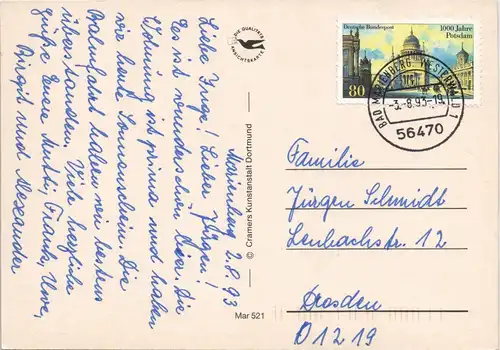 Marienberg 2.8.93
Liebe Inge! Lieber Jürgen!
Es ist wunderschön hier. Die
Wohnung ist prima und haben
wir heute Sonnenschein. Die
Bahnfahrt haben wir bestens
überstanden. Viele herzliche
Grüße Eure Mutti, Frank, Uwe,
Birgit und Alexander
DIE QUALITÄTS
ANSICHTSKARTE
© Cramers Kunstanstalt Dortmund
Mar 521
Deutsche Bundespost
1000 Jahre
Potsdam
80
BAD MARIENBERG, WESTERWALD 1
-3.-8.93-19
56470
Familie
Jürgen Schmidt
Lenbachstr. 12
Dresden
O 1219